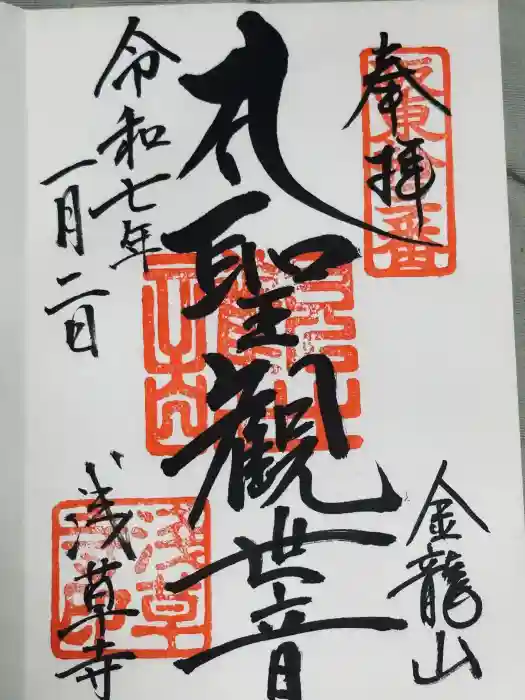 奉拝
坂東拾三番
金龍山
礼聖観世音
令和七年
一月二日
浅草寺
浅草寺